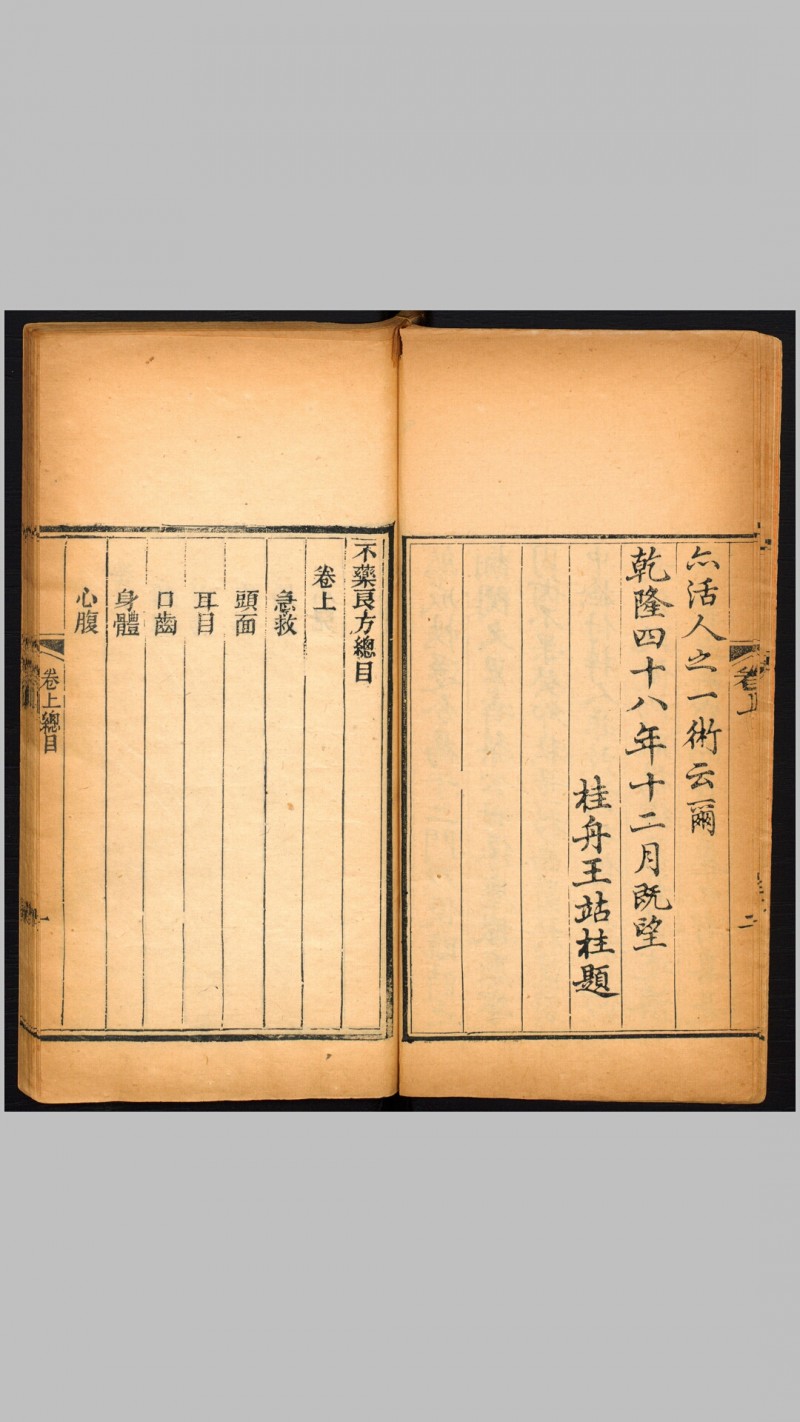 亽活人之一術云爾
乾隆四十八年十二月既望
桂舟王站柱題
卷上
二
不藥良方總目
卷上
急救
頭面
耳目
口齒
身體
心腹
卷上總目
一